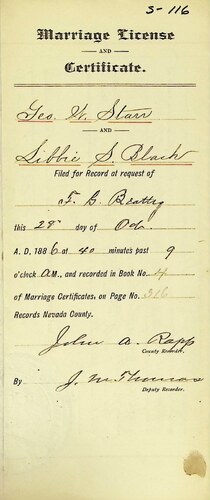 S-116
Marriage License
AND
Certificate.
Geo. W. Starr
AND
Libbie S. Black
Filed for Record at request of
F. G. Beatty
this 28" day of Oct.
A. D. 1886 at 40 minutes past 9
o'clock A.M., and recorded in Book No. 4
of Marriage Certificates, on Page No. 316
Records Nevada County.
John A. Rapp
County Recorder.
By J. M. Thomas
Deputy Recorder.